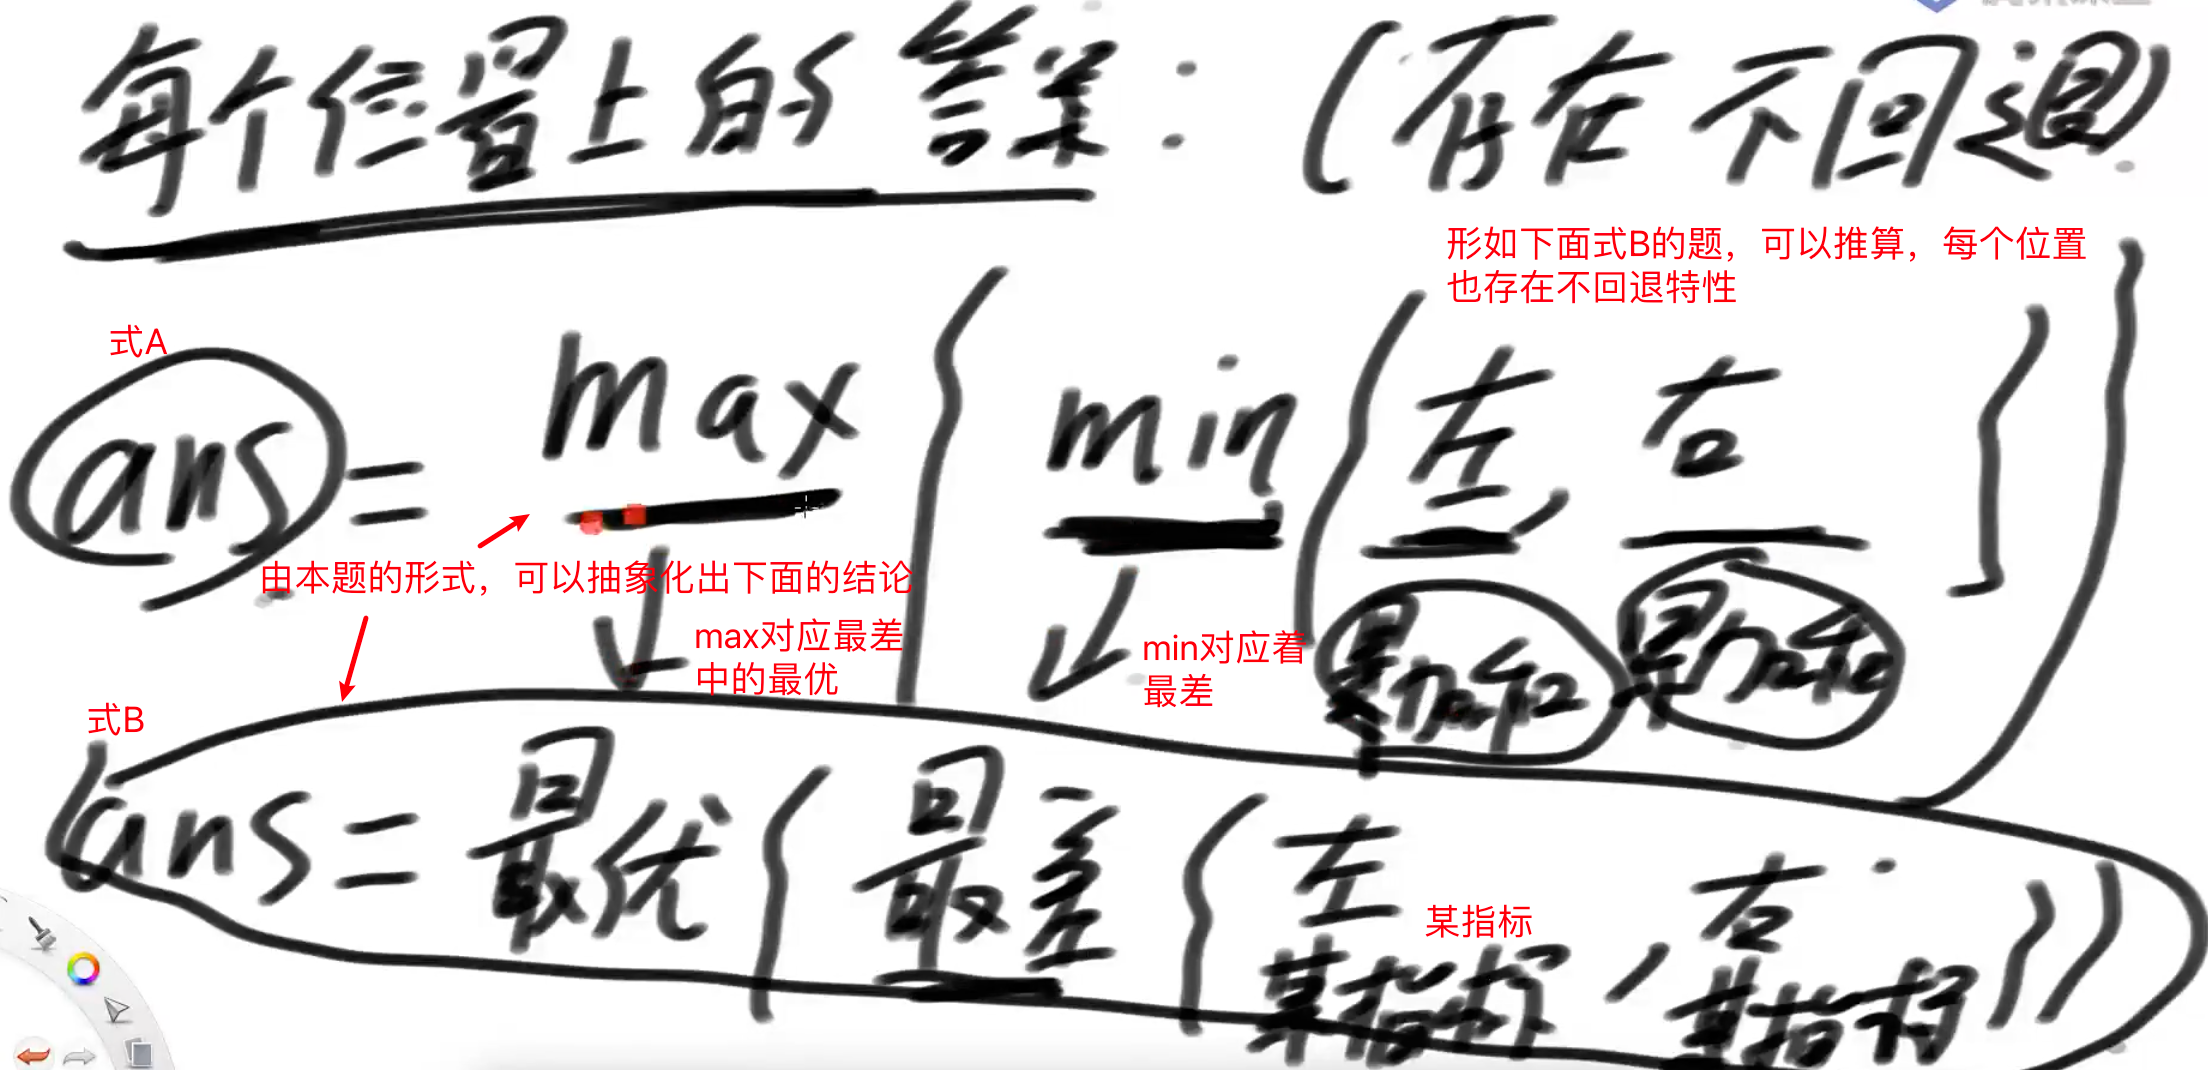 每个位置上的答案：（存在不回退）
形如下面式B的题，可以推算，每个位置
也存在不回退特性
式A
ans = max { min { 左, 右 } }
累加和 累加和
由本题的形式，可以抽象化出下面的结论
max对应最差
中的最优
min对应着
最差
式B
ans = 最优 { 最差 { 左 , 右 } }
某指标
某指标 某指标